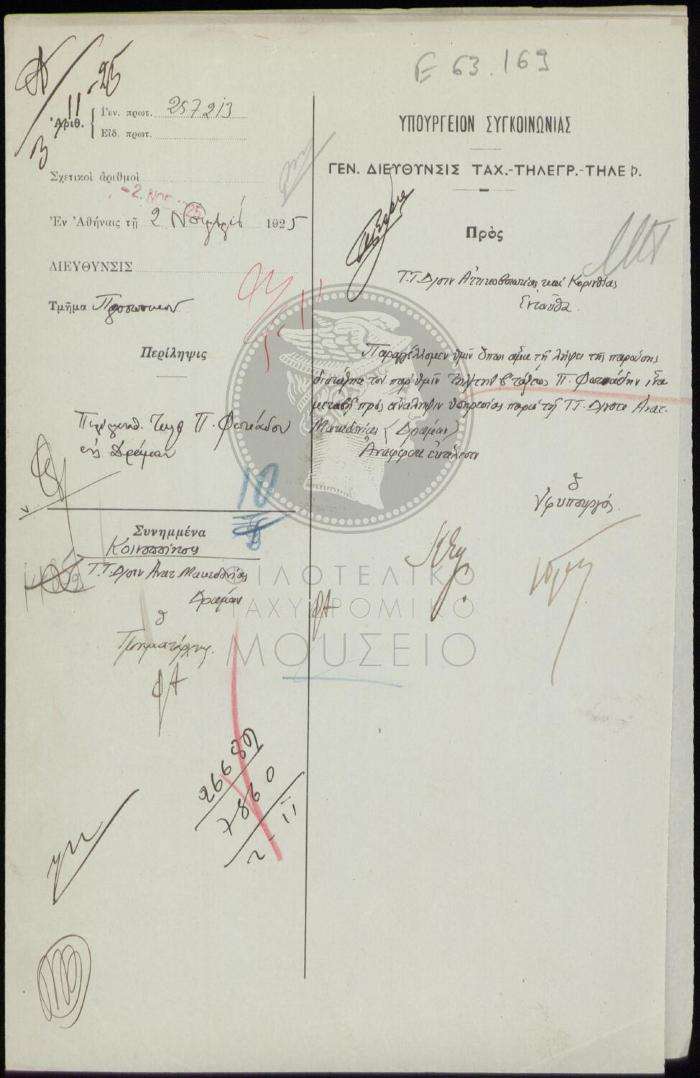 Ε 63.169
11-25
Ἀριθ.
Γεν. πρωτ. 257213
Εἰδ. πρωτ.
Σχετικοὶ ἀριθμοὶ
-2. ΝΟΕ. 25
Ἐν Ἀθήναις τῇ 2 Νοεμβρίου 1925
ΔΙΕΥΘΥΝΣΙΣ
Τμῆμα Προσωπικοῦ
Περίληψις
Π. Φωτιάδου
εἰς Δράμαν
10
Συνημμένα
Κοινοποίησις
Τ.Τ. Δ/σιν Ἀνατ. Μακεδονίας
Δράμαν
ὁ
Τμηματάρχης
26689
7860
2-11
ΥΠΟΥΡΓΕΙΟΝ ΣΥΓΚΟΙΝΩΝΙΑΣ
ΓΕΝ. ΔΙΕΥΘΥΝΣΙΣ ΤΑΧ.-ΤΗΛΕΓΡ.-ΤΗΛΕΦ.
Πρὸς
Τ.Τ. Δ/σιν Ἀττικοβοιωτίας καὶ Κορινθίας
Ἐνταῦθα
Παραγγέλλομεν ὑμῖν ὅπως ἅμα τῇ λήψει τῆς παρούσης
διατάξητε τὸν παρ' ὑμῖν τάξεως Π. Φωτιάδην ἵνα
μεταβῇ πρὸς ἀνάληψιν ὑπηρεσίας παρὰ τῇ Τ.Τ. Δ/νσει Ἀνατ.
Μακεδονίας (Δράμαν)
Ἀναφέρατε ἐκτέλεσιν
ὁ
Ὑφυπουργός
ΦΙΛΟΤΕΛΙΚΟ
ΤΑΧΥΔΡΟΜΙΚΟ
ΜΟΥΣΕΙΟ